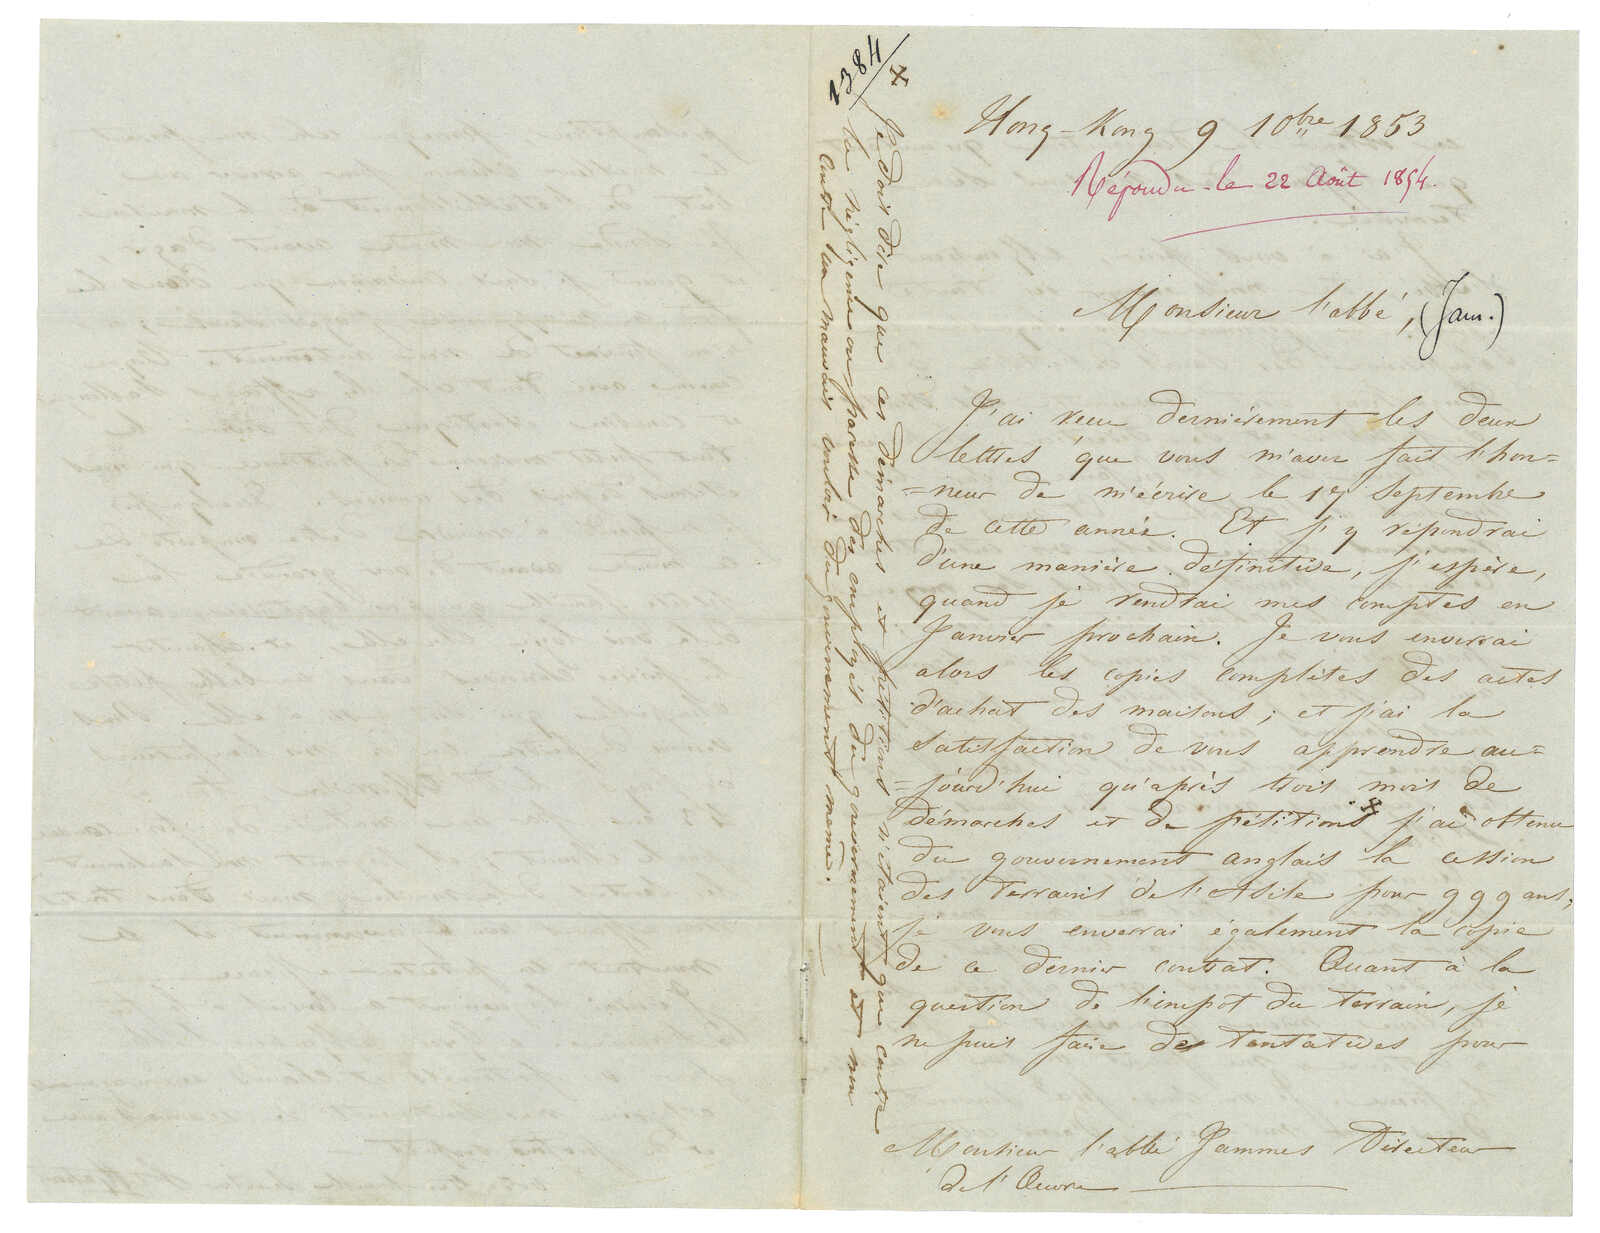 1384
Hong-Kong 9 10bre 1853
Répondu le 22 Août 1854.
Monsieur l'abbé, (Jam.)
J'ai reçu dernièrement les deux
lettres que vous m'avez fait l'hon=
=neur de m'écrire le 17 Septembre
de cette année. Et j'y répondrai
d'une manière définitive, j'espère,
quand je rendrai mes comptes en
Janvier prochain. Je vous enverrai
alors les copies complètes des actes
d'achat des maisons; et j'ai la
satisfaction de vous apprendre au=
=jourd'hui qu'après trois mois de
démarches et de pétitions x j'ai obtenu
du gouvernement anglais la cession
des terrains de l'Asile pour 999 ans,
je vous enverrai également la copie
de ce dernier contrat. Quant à la
question de l'impot du terrain, je
ne puis faire des tentatives pour
Monsieur l'abbé Jammes Directeur
de l'Oeuvre
x Je dois dire que ces démarches et pétitions n'étaient que contre
la négligence ou paresse des employés du gouvernement et non
contre un mauvais vouloir du gouvernement même.